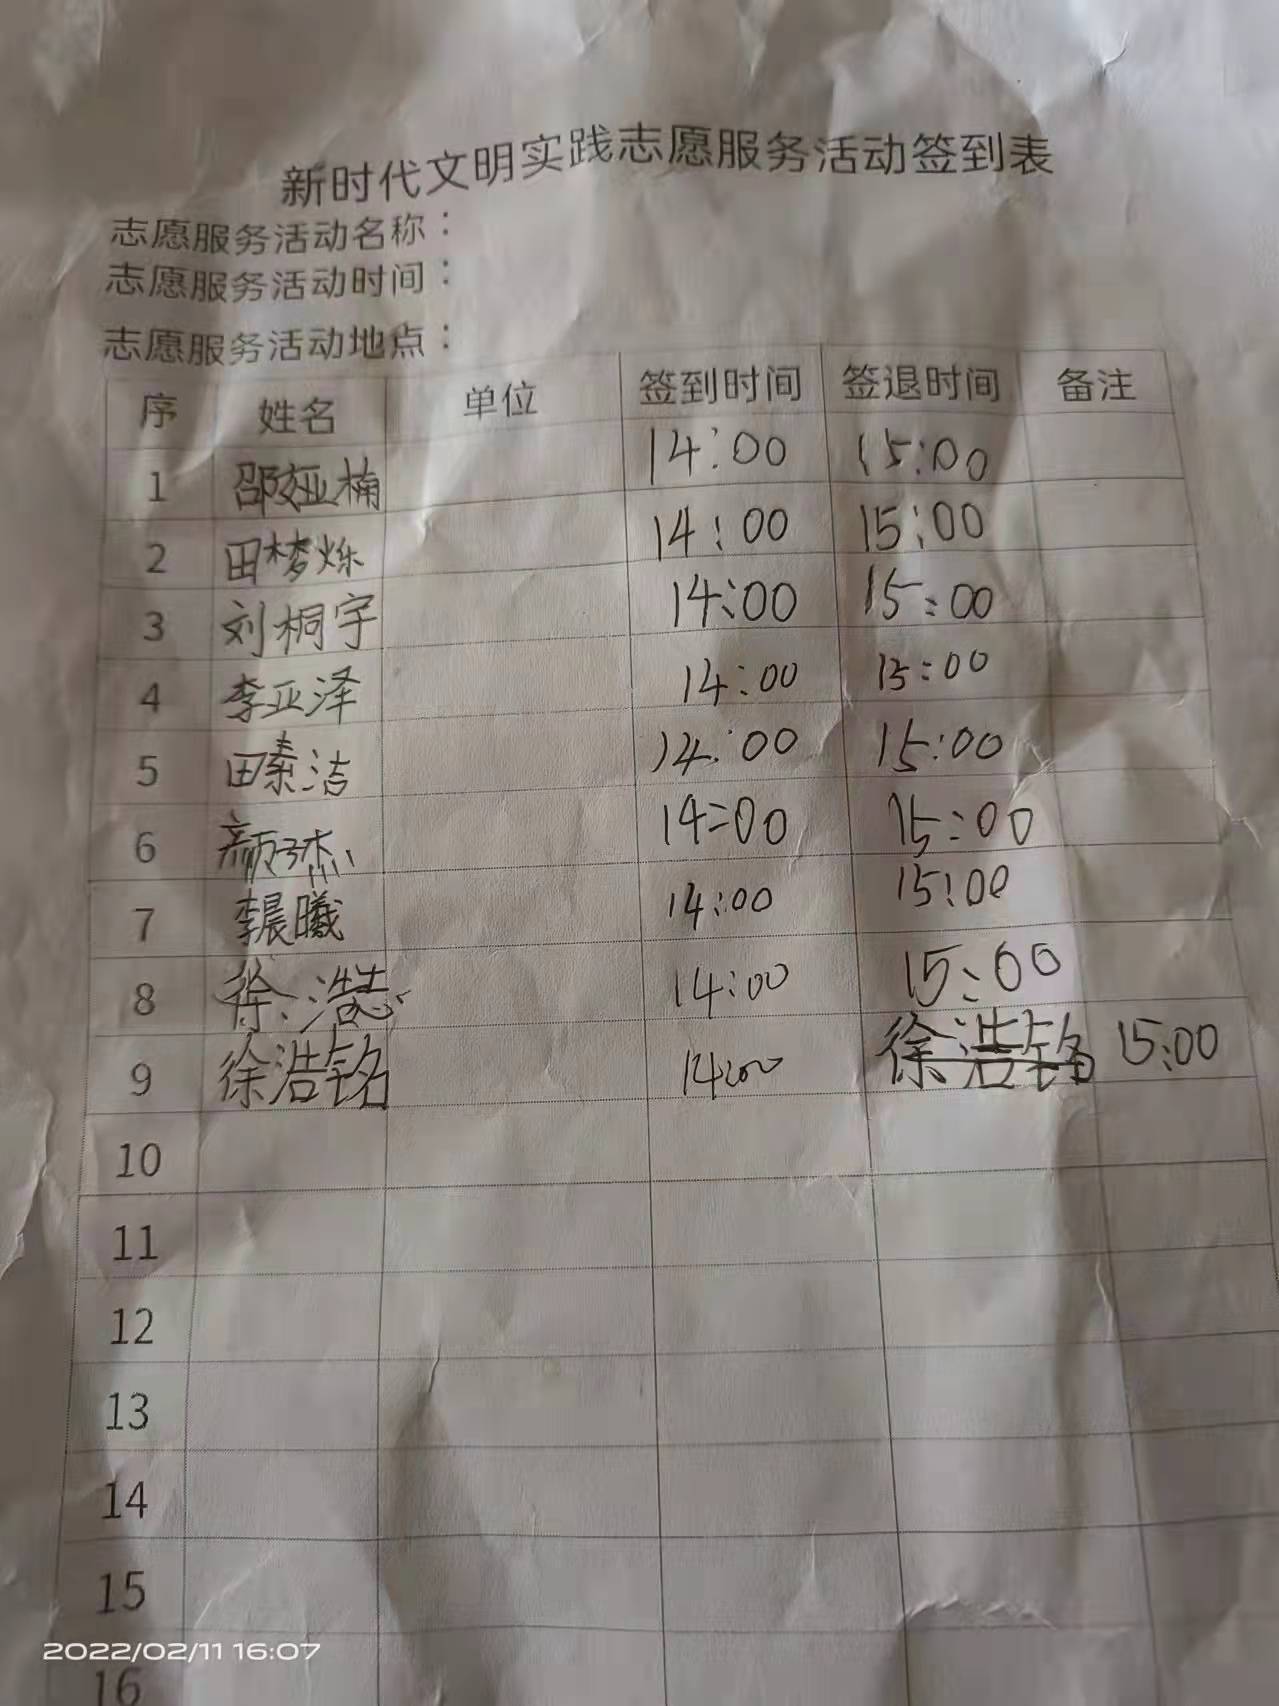 新时代文明实践志愿服务活动签到表
志愿服务活动名称：
志愿服务活动时间：
志愿服务活动地点：
序 姓名 单位 签到时间 签退时间 备注
1 邵娅楠 14:00 15:00
2 田梦烁 14:00 15:00
3 刘桐宇 14:00 15:00
4 李亚泽 14:00 15:00
5 田素洁 14:00 15:00
6 颜子杰 14:00 15:00
7 李晨曦 14:00 15:00
8 徐浩志 14:00 15:00
9 徐浩铭 14:00 徐浩铭 15:00
10
11
12
13
14
15
16
2022/02/11 16:07